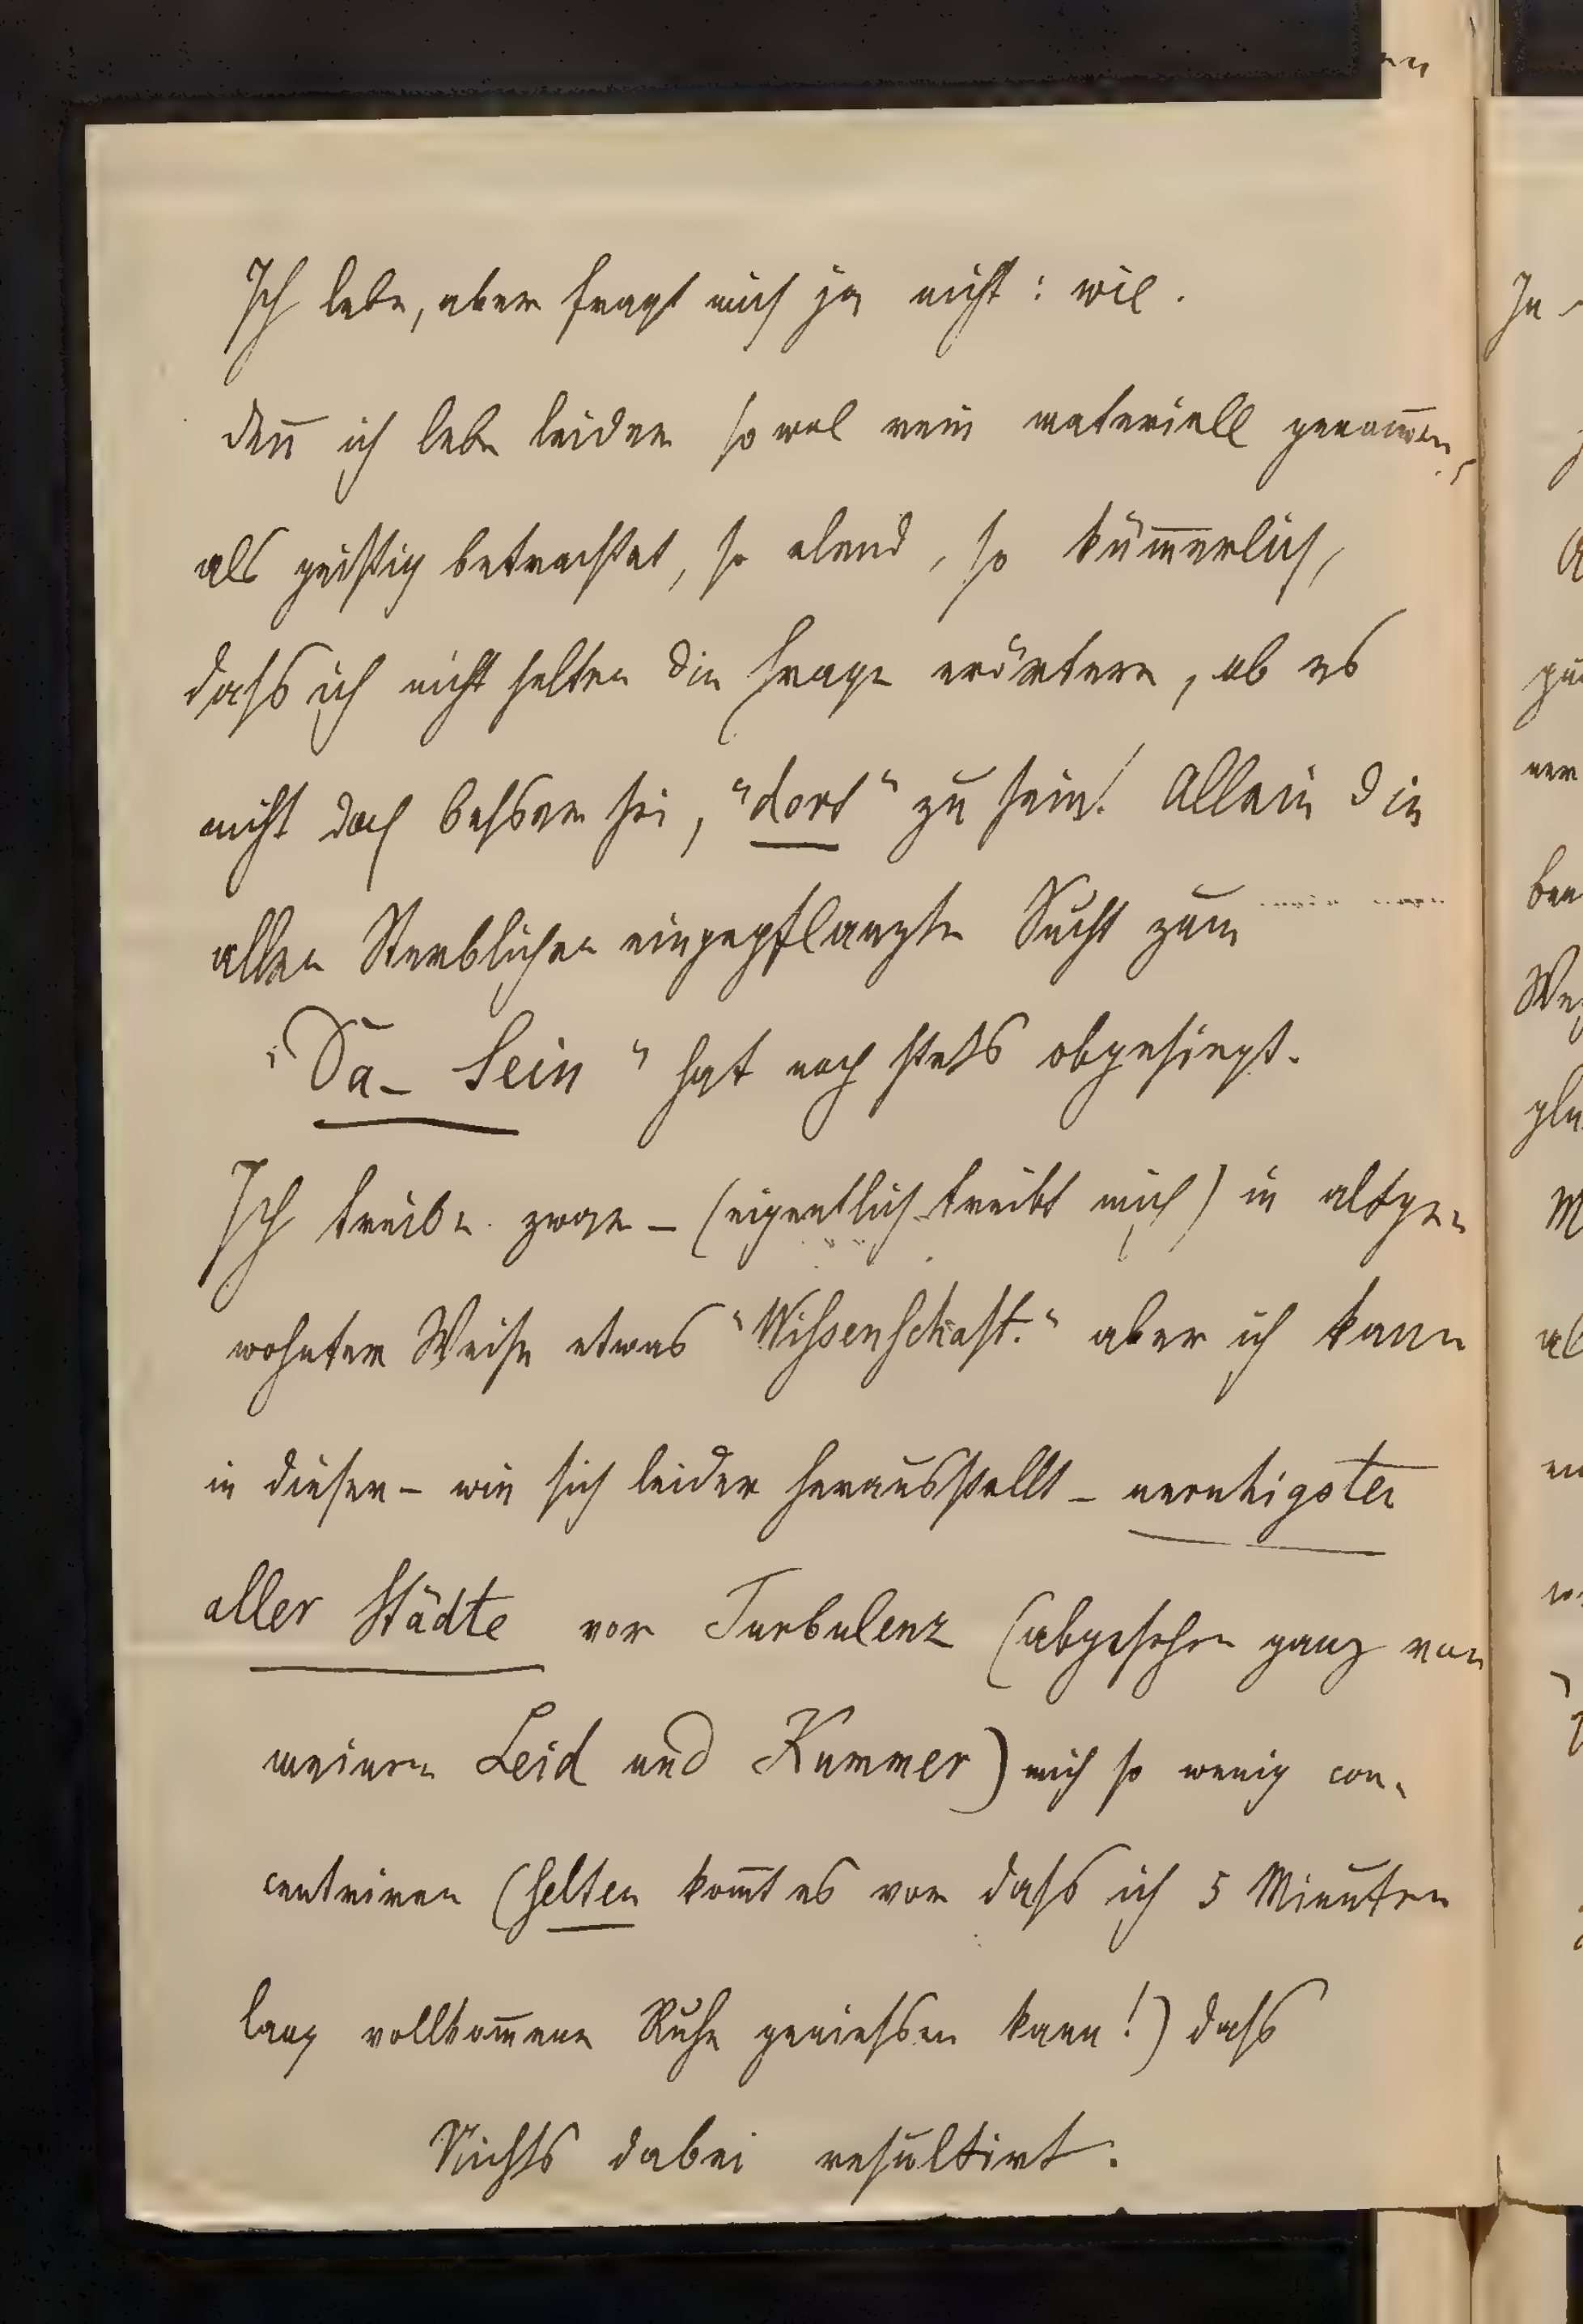 Ich lebe, aber fragt mich ja nicht: wie.
deñ ich lebe leider sowol rein materiell genom̃en,
als geistig betrachtet, so elend, so küm̃erlich,
dass ich nicht selten die Frage erörtere, ob es
nicht doch besser sei, "dort" zu sein! Allein die
allen Sterblichen eingepflanzte Sucht zum
"Da-Sein" hat noch stets obgesiegt.
Ich treibe zwar – (eigentlich treibt mich) in altge-
wohnter Weise etwas "Wissenschaft." aber ich kann
in dieser – wie sich leider herausstellt – unruhigster
aller Städte vor Turbulenz (abgesehen ganz von
meinem Leid und Kummer) mich so wenig con-
centriren (selten kom̃t es vor dass ich 5 Minuten
lang vollkom̃ene Ruhe geniessen kann!) dass
Nichts dabei resultirt.